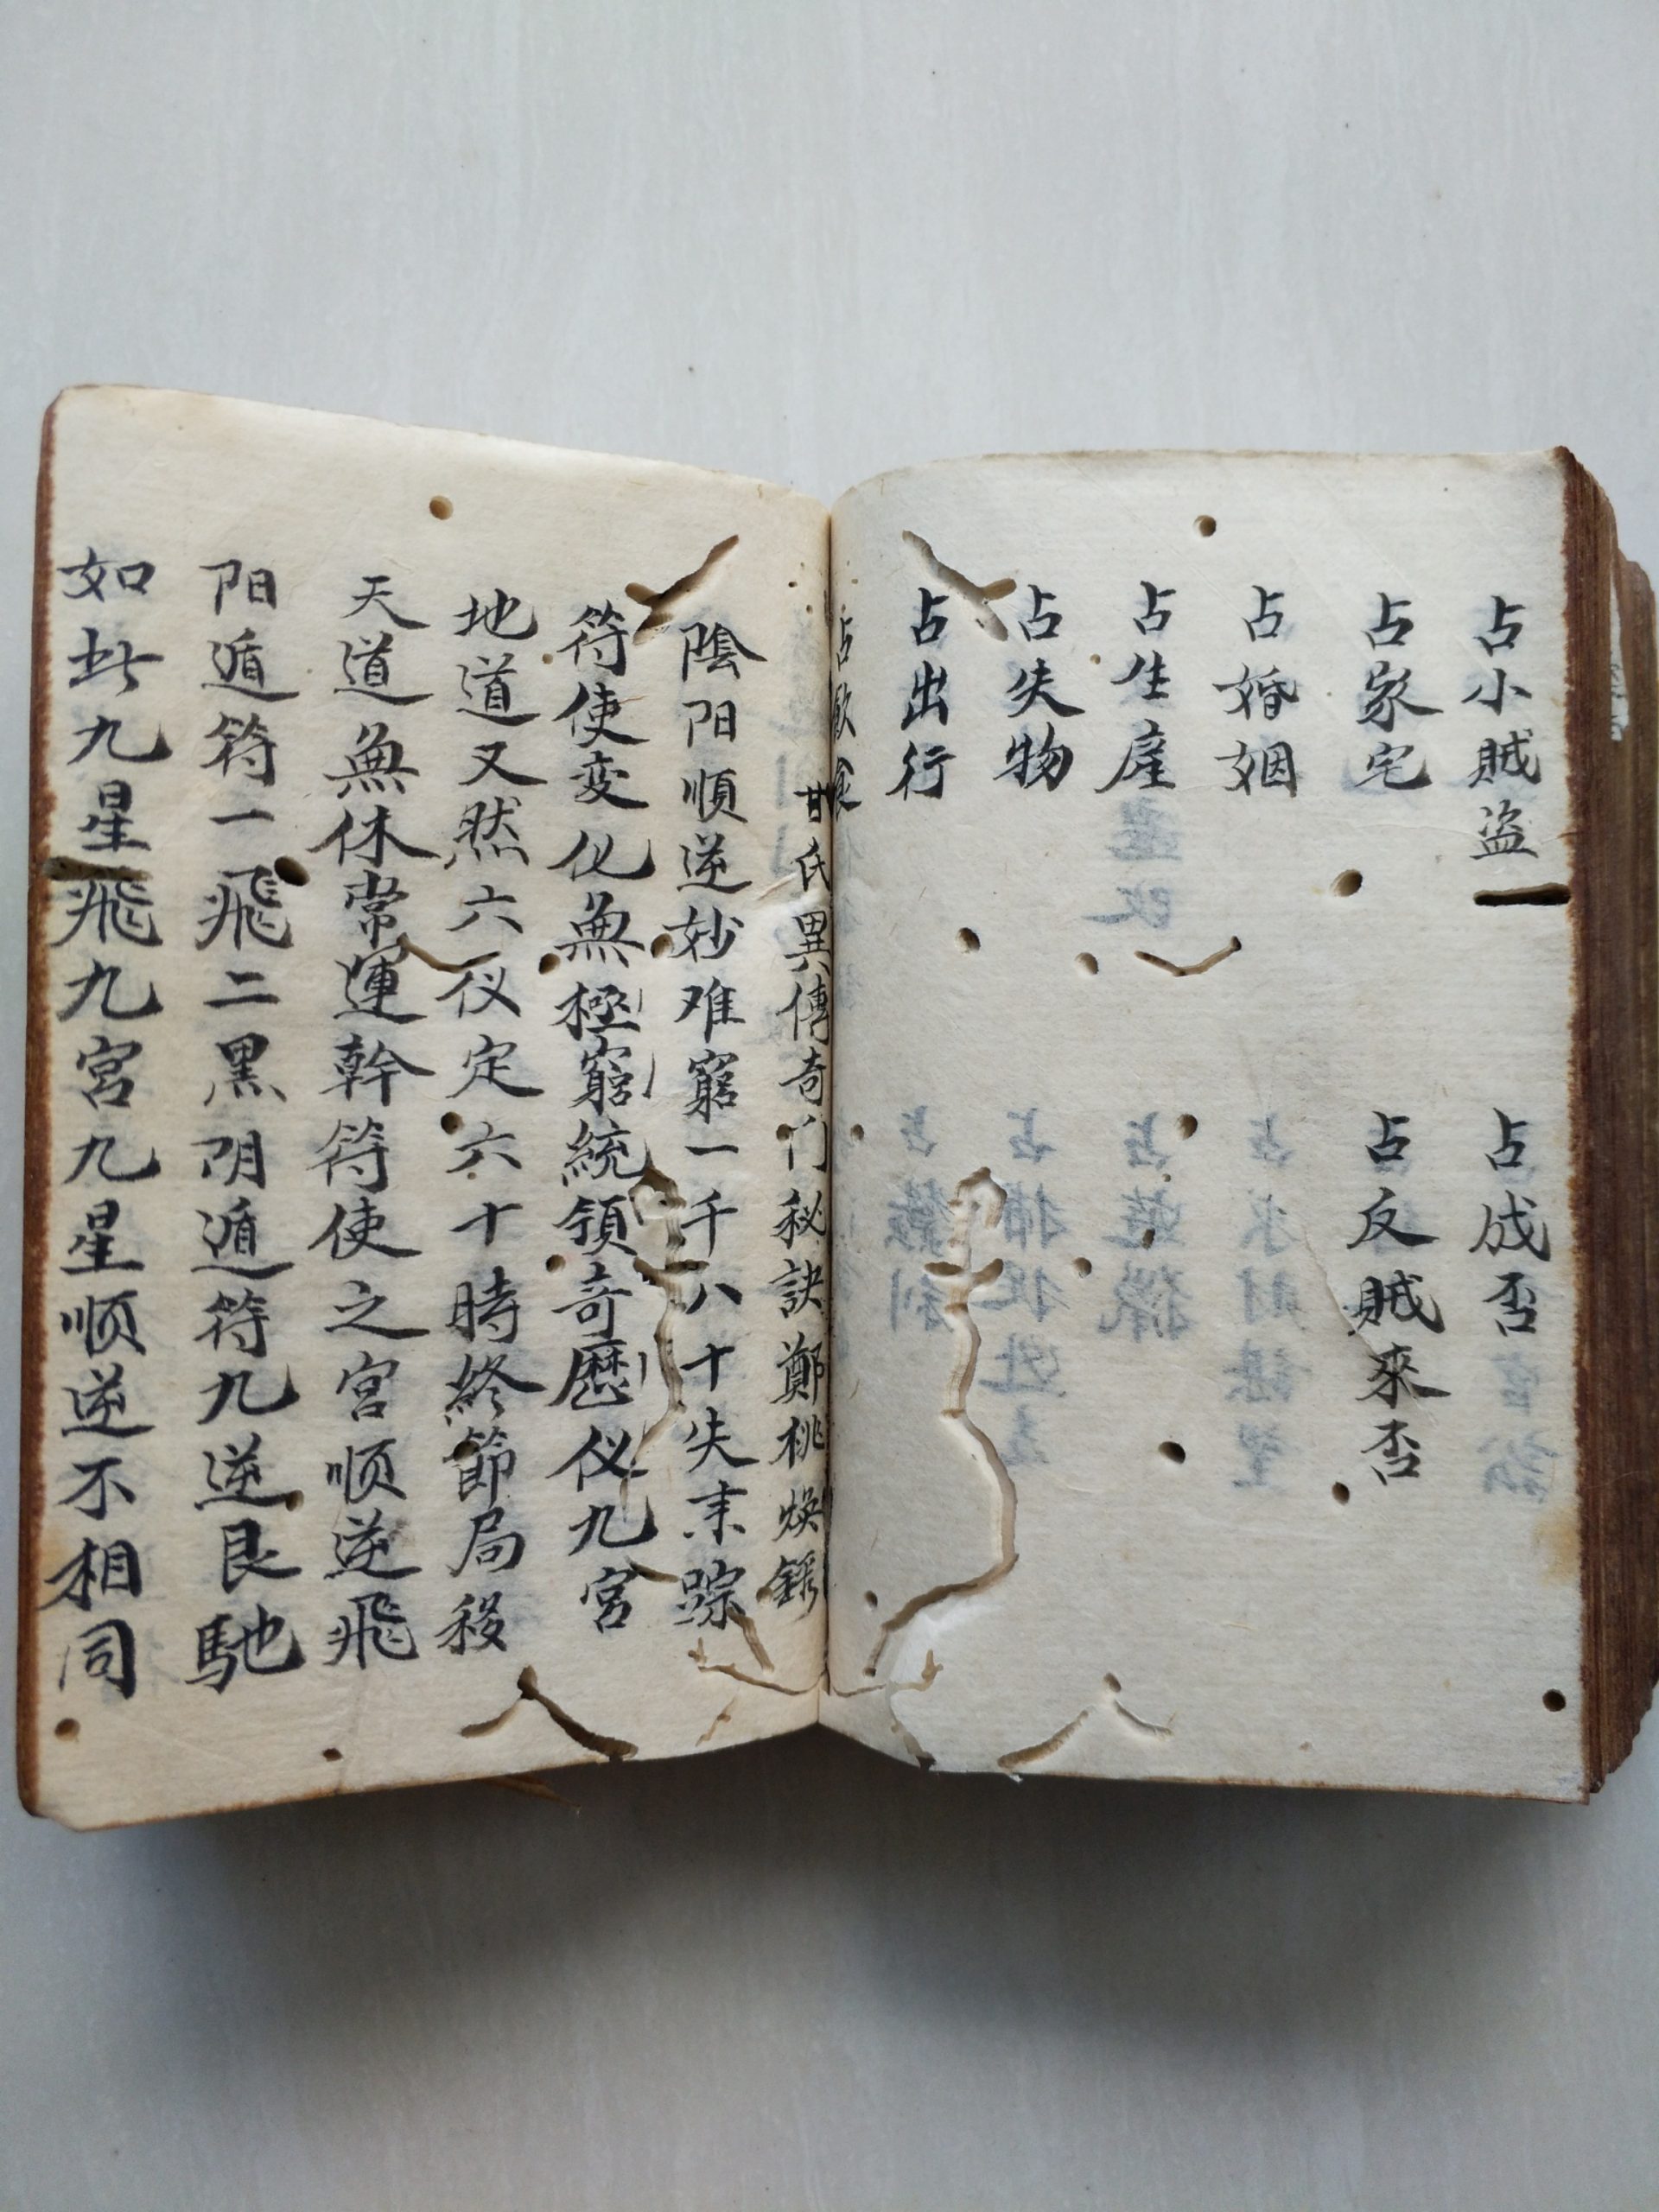 占小賊盜
占成否
占家宅
占反賊來否
占婚姻
占生產
占失物
占出行
占飲食
甘氏異傳奇门秘訣鄭桃煥錄
陰阳順逆妙难窮一千八十失末踪
符使变化無極窮統領奇曆仪九宮
地道又然六仪定六十時終節局移
天道無休常運幹符使之宮顺逆飛
阳遁符一飛二黑阴遁符九逆艮馳
如此九星飛九宮九星顺逆不相同